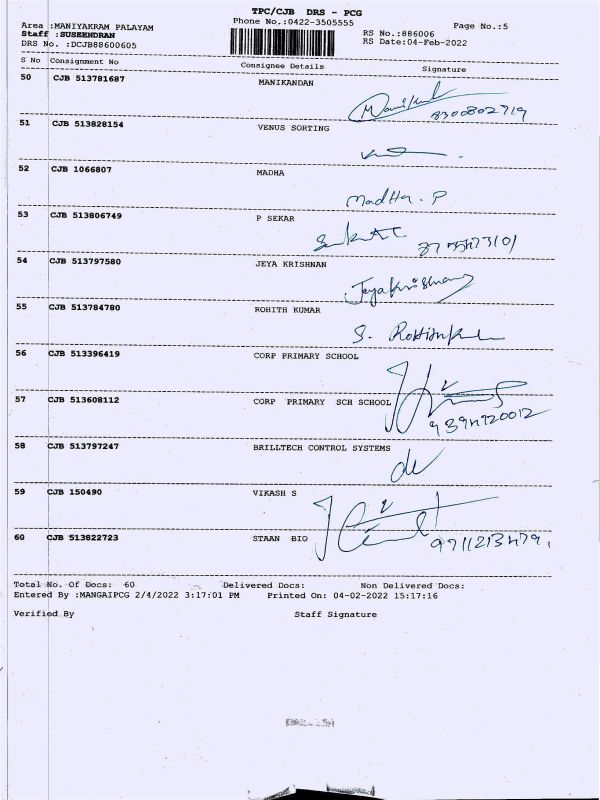 TPC/CJB DRS - PCG
Area :MANIYAKRAM PALAYAM Phone No.:0422-3505555 Page No.:5
Staff :SUSEENDRAN RS No.:886006
DRS No. :DCJB88600605 RS Date:04-Feb-2022
S No Consignment No Consignee Details Signature
50 CJB 513781687 MANIKANDAN
8300802719
51 CJB 513828154 VENUS SORTING
52 CJB 1066807 MADHA
Madha. P
53 CJB 513806749 P SEKAR
54 CJB 513797580 JEYA KRISHNAN
Jeyakrishnan
55 CJB 513784780 ROHITH KUMAR
56 CJB 513396419 CORP PRIMARY SCHOOL
57 CJB 513608112 CORP PRIMARY SCH SCHOOL
58 CJB 513797247 BRILLTECH CONTROL SYSTEMS
59 CJB 150490 VIKASH S
60 CJB 513822723 STAAN BIO
Total No. Of Docs: 60 Delivered Docs: Non Delivered Docs:
Entered By :MANGAIPCG 2/4/2022 3:17:01 PM Printed On: 04-02-2022 15:17:16
Verified By Staff Signature